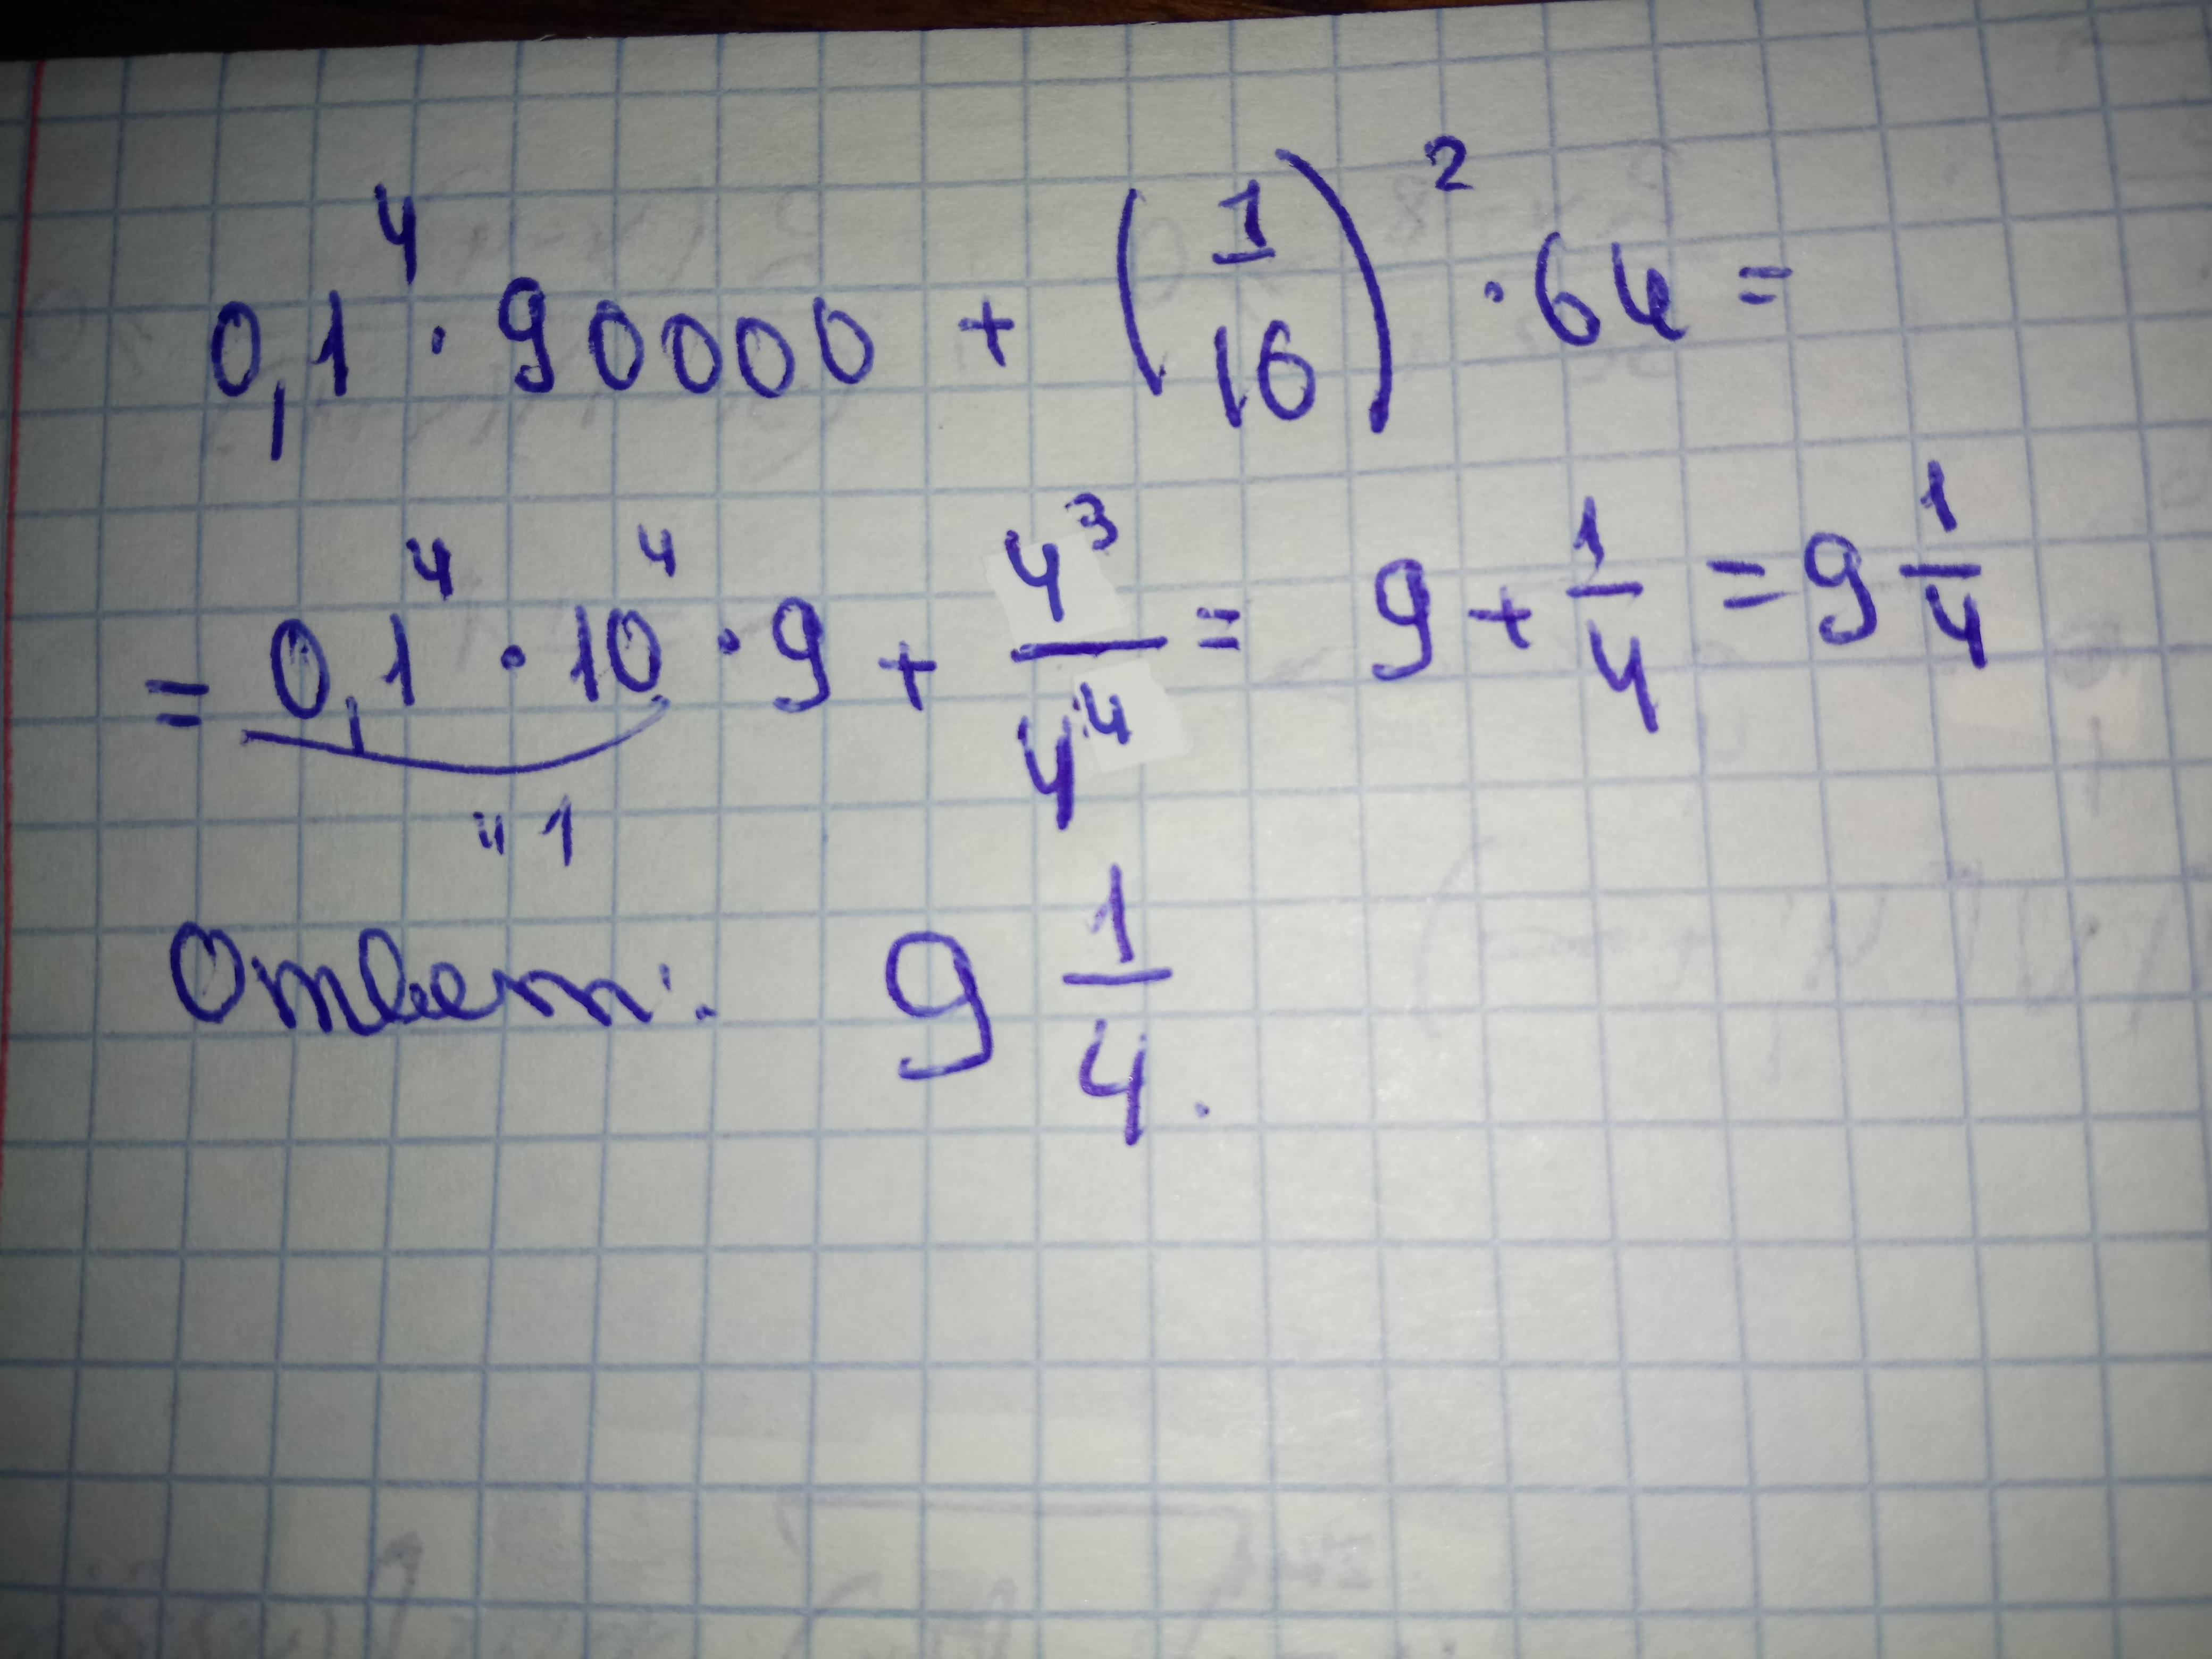 0,1⁴ · 90000 + (1/16)² · 64 =
= 0,1⁴ · 10⁴ · 9 + 4³/4⁴ = 9 + 1/4 = 9 1/4
" 1
Ответ: 9 1/4.